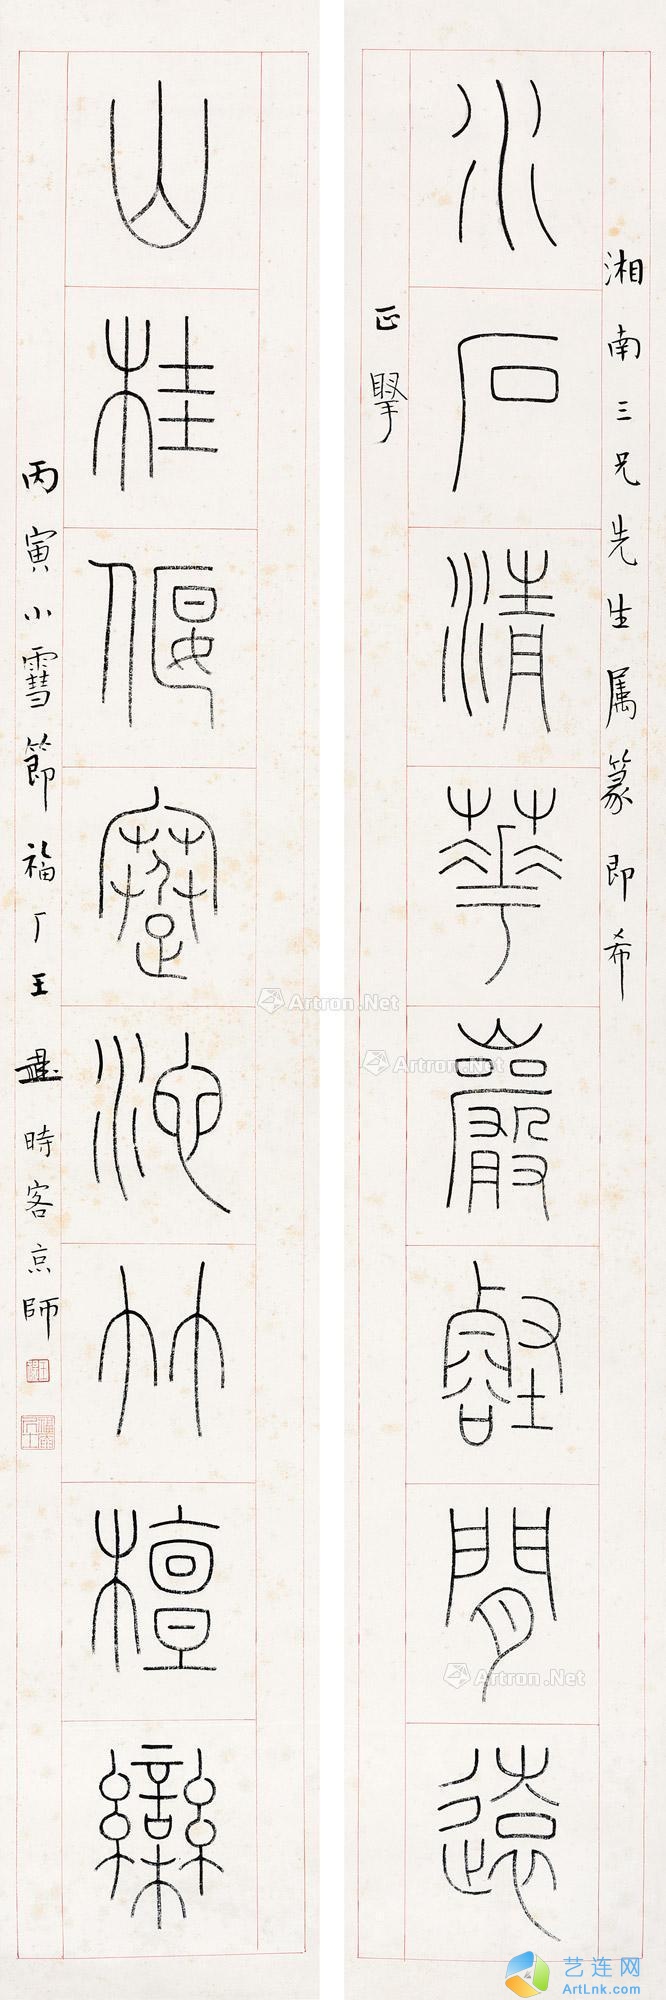 湘南三兄先生属篆即希
水石清華巖壑閒遠
正掔
山桂偃蹇池竹檀欒
丙寅小䨮節福厂王禔時客京師
Artron.Net
Artron.Net
Artron.Net
艺连网
ArtLnk.com